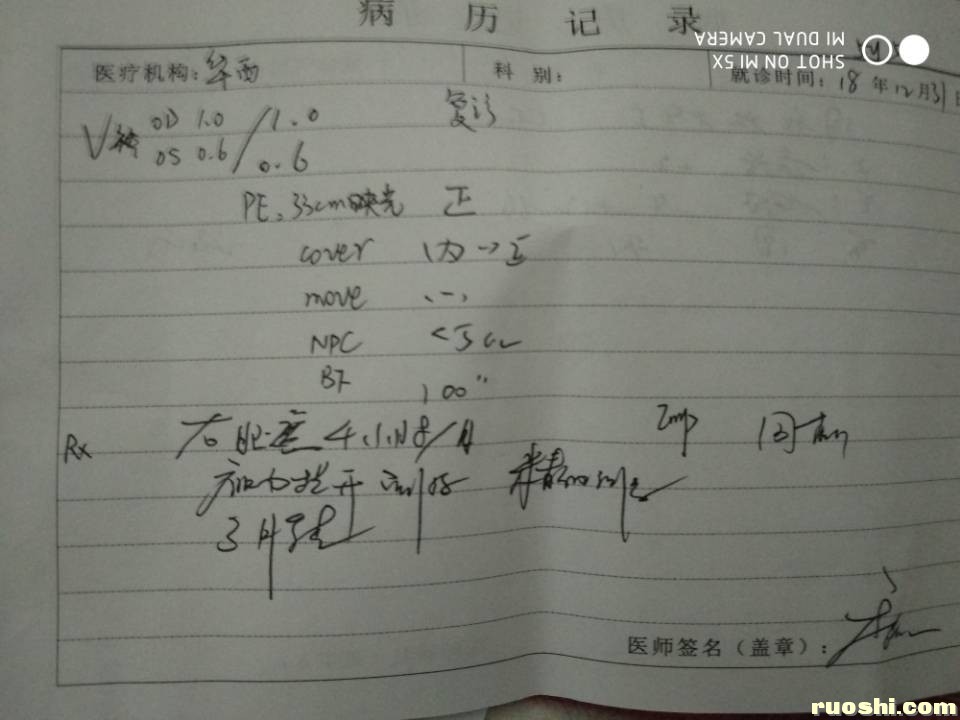 病 历 记 录
SHOT ON MI 5X
MI DUAL CAMERA
医疗机构：华西 科 别： 就诊时间：18年12月31日
V OD 1.0 / 1.0 复诊
OS 0.6 / 0.6
PE. 33cm映光 正
cover 内→正
move (-)
NPC <5cm
BF 100"
Rx 右眼遮 4小时/日 Imp 同前
3月
医师签名（盖章）：
ruoshi.com